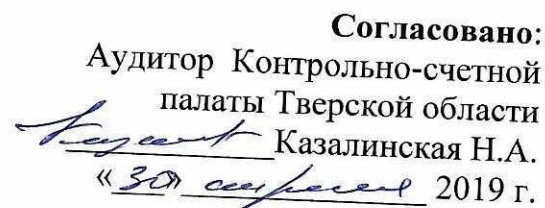 Согласовано:
Аудитор Контрольно-счетной
палаты Тверской области
Казалинская Н.А.
«30» апреля 2019 г.